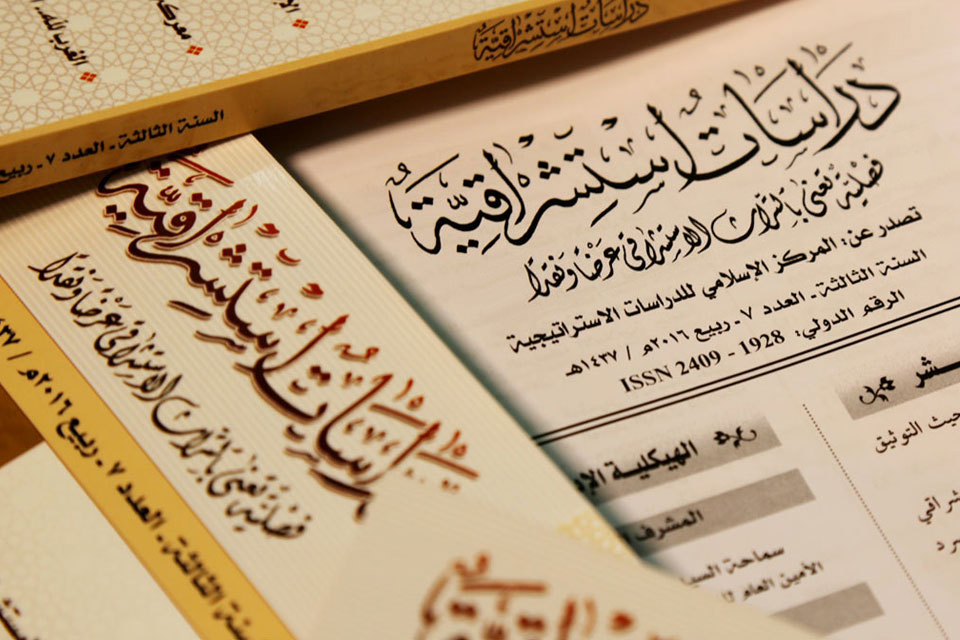 معركة
الغرب
دراسات استشراقية
السنة الثالثة - العدد ٧ - ربيع
دراسات استشراقية
فصلية تعنى بالتراث الاستشراقي عرضًا ونقدًا
تصدر عن: المركز الإسلامي للدراسات الاستراتيجية
السنة الثالثة - العدد ٧ - ربيع ٢٠١٦م / ١٤٣٧هـ
الرقم الدولي: ISSN 2409 - 1928
الهيكلية
المشرف
سماحة
الأمين العام
حيث التوثيق
استشراقية
فصلية تعنى بالتراث الاستشراقي عرضًا ونقدًا
السنة الثالثة - العدد ٧ - ربيع ٢٠١٦م / ١٤٣٧